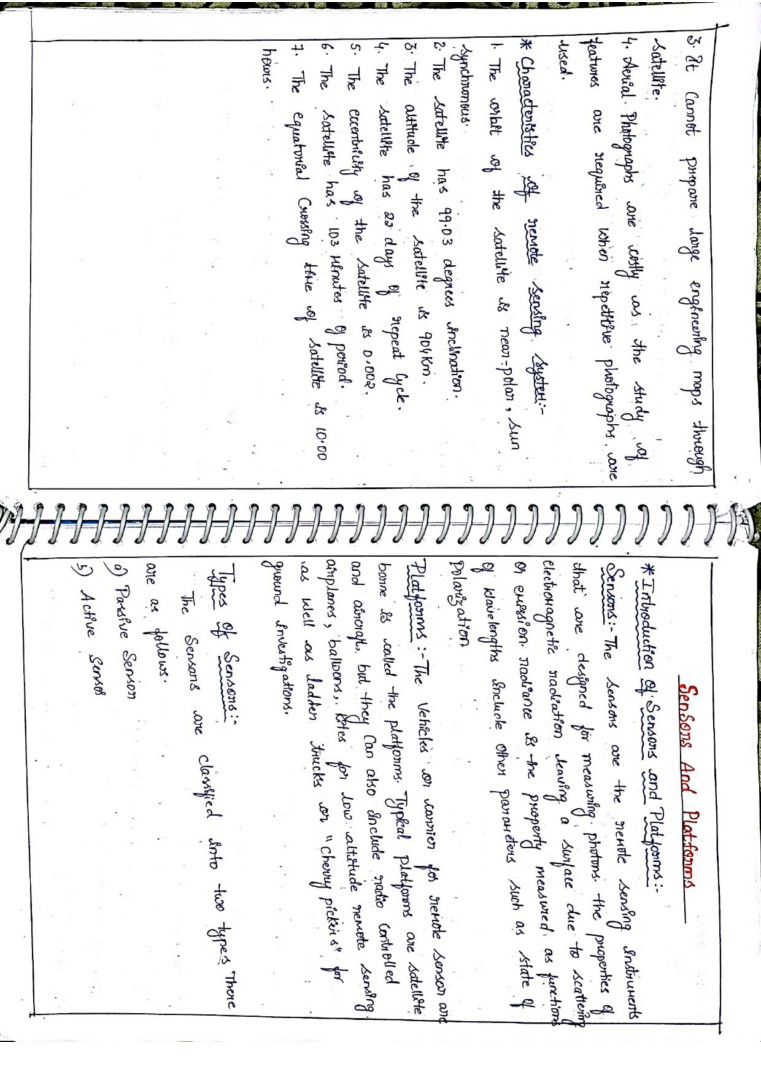 3. It Cannot prepare large engineering maps through
satellite.
4. Aerial Photographs are costly as, the study of
features are required when repetitive photographs are
used.
* Characteristics of remote sensing system:-
1. The orbit of the satellite is near-polar, sun
synchronous.
2. The satellite has 99.03 degrees inclination.
3. The altitude of the satellite is 904km.
4. The satellite has 22 days of repeat cycle.
5. The eccentricity of the satellite is 0.002.
6. The satellite has 103 minutes of period.
7. The equatorial Crossing time of satellite is 10:00
hours.
Sensors And Platforms
* Introduction of Sensors and Platforms:-
Sensors:- The sensors are the remote sensing instruments
that are designed for measuring photons. the properties of
electromagnetic radiation leaving a surface due to scattering
or emission. radiance is the property measured as functions
of wavelengths include other parameters such as state of
Polarization
Platforms:- The Vehicles or carrier for remote sensor are
borne is called the platforms. Typical platforms are satellite
and aircraft, but they can also include radio controlled
airplanes, balloons, kites for low altitude remote sensing.
as well as ladder trucks or "cherry pickers" for
ground investigations.
Types of Sensors:-
The Sensors are classified into two types There
are as follows.
a) Passive Sensor
b) Active Sensor